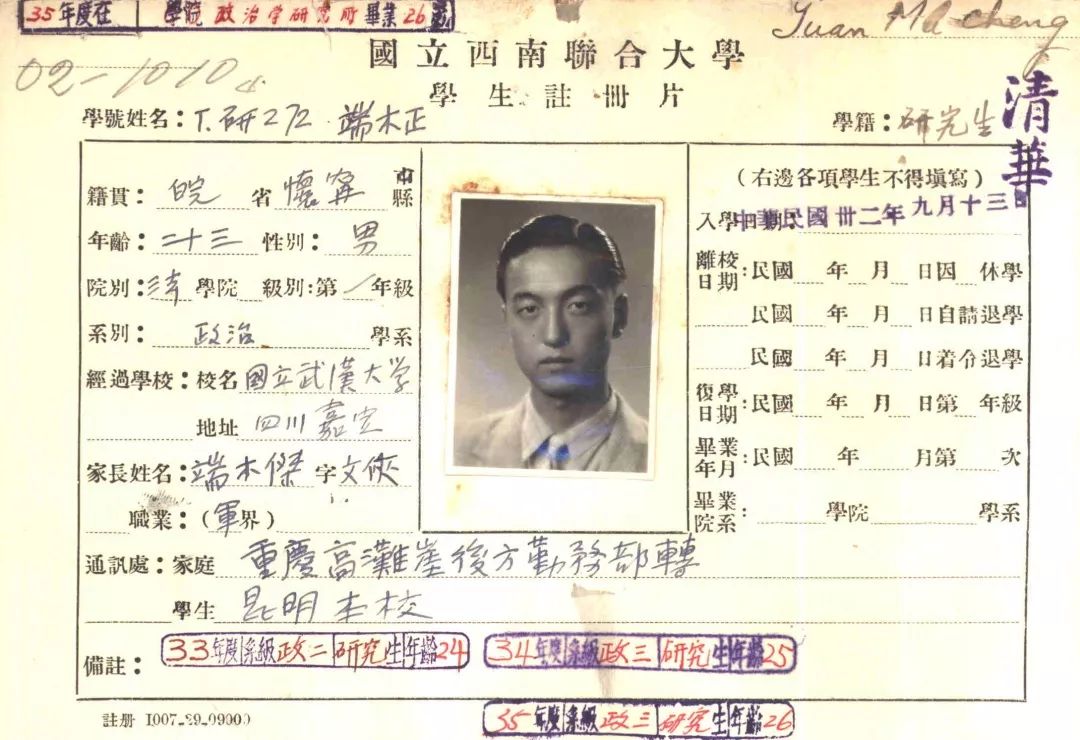 35年度在 學院 政治学研究所畢業26
Tuan Mu cheng
國立西南聯合大學
02-1010
學生註冊片
清華
學號姓名：T.研272 端木正
學籍：研究生
籍貫：皖省懷甯縣市
年齡：二十三 性別：男
院別： 學院 級別：第一年級
系別：政治學系
經過學校：校名國立武漢大学
地址 四川嘉定
家長姓名：端木傑 字文俠
職業：（軍界）
（右邊各項學生不得填寫）
入學日期：中華民國卅二年九月十三日
離校日期：民國 年 月 日因 休學
民國 年 月 日自請退學
民國 年 月 日着令退學
復學日期：民國 年 月 日第 年級
畢業年月：民國 年 月第 次
畢業院系： 學院 學系
通訊處：家庭 重慶高灘崖後方勤務部轉
學生 昆明本校
備註：33年度系級政二研究生年齡24 34年度系級政三研究生年齡25
35年度系級政三研究生年齡26
註册 1007-29-0900